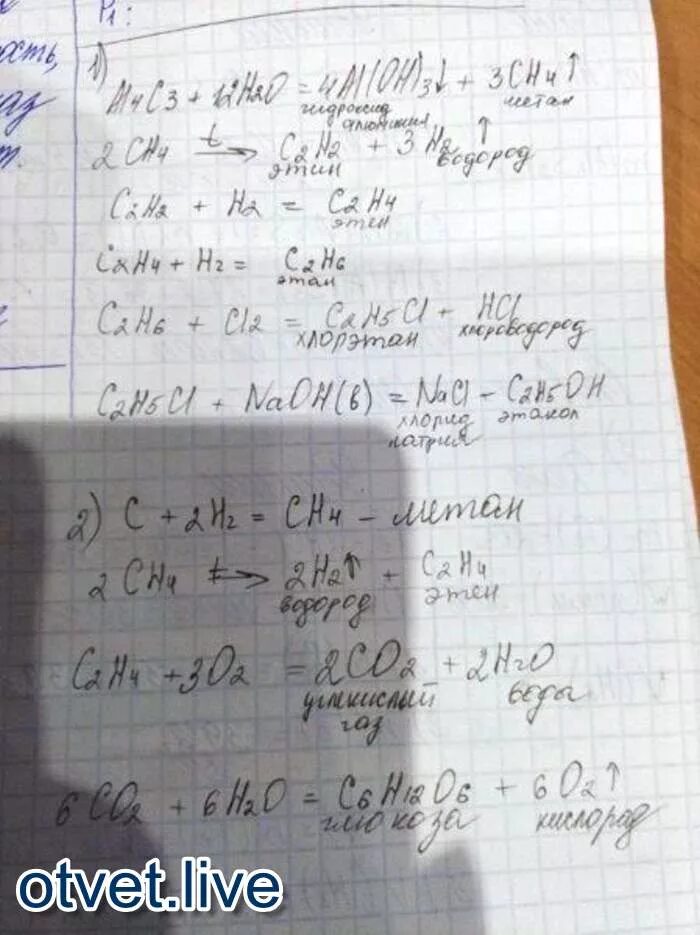 Р1:
ость,
аз
т.
1)
Al4C3 + 12H2O = 4Al(OH)3↓ + 3CH4↑
гидроксид алюминия метан
2CH4 t→ C2H2 + 3H2↑
этин водород
C2H2 + H2 = C2H4
этен
C2H4 + H2 = C2H6
этан
C2H6 + Cl2 = C2H5Cl + HCl
хлорэтан хлороводород
C2H5Cl + NaOH(в) = NaCl - C2H5OH
хлорид натрия этанол
2) C + 2H2 = CH4 - метан
2CH4 t→ 2H2↑ + C2H4
водород этен
C2H4 + 3O2 = 2CO2 + 2H2O
углекислый газ вода
6CO2 + 6H2O = C6H12O6 + 6O2↑
глюкоза кислород
otvet.live